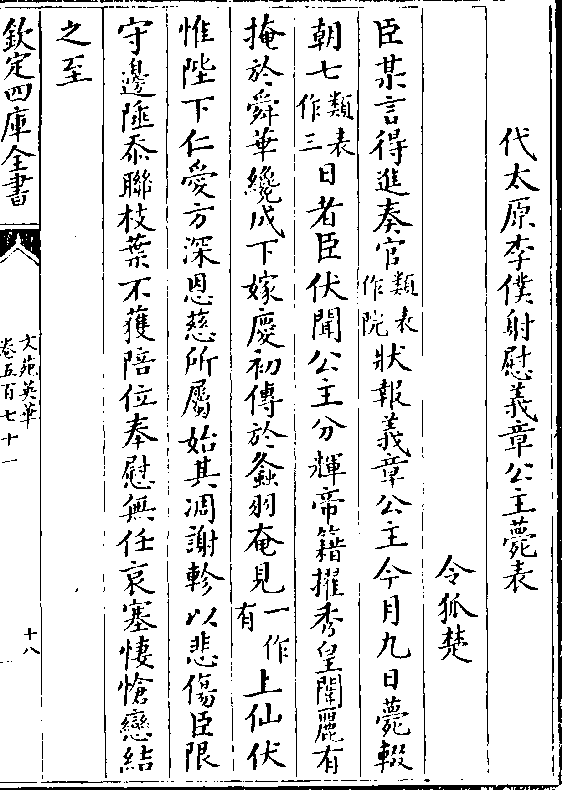 代太原李僕射慰義章公主薨表
令狐楚
臣某言得進奏官類表作院狀報義章公主今月九日薨輟
朝七類表作三日者臣伏聞公主分輝帝籍擢秀皇闈麗有
掩於舜華纔成下嫁慶初傳於螽羽奄見一作有上仙伏
惟陛下仁愛方深恩慈所屬始其凋謝軫以悲傷臣限
守邊陲忝聯枝葉不獲陪位奉慰無任哀塞悽愴戀結
之至
欽定四庫全書
文苑英華
卷五百七十一
十八